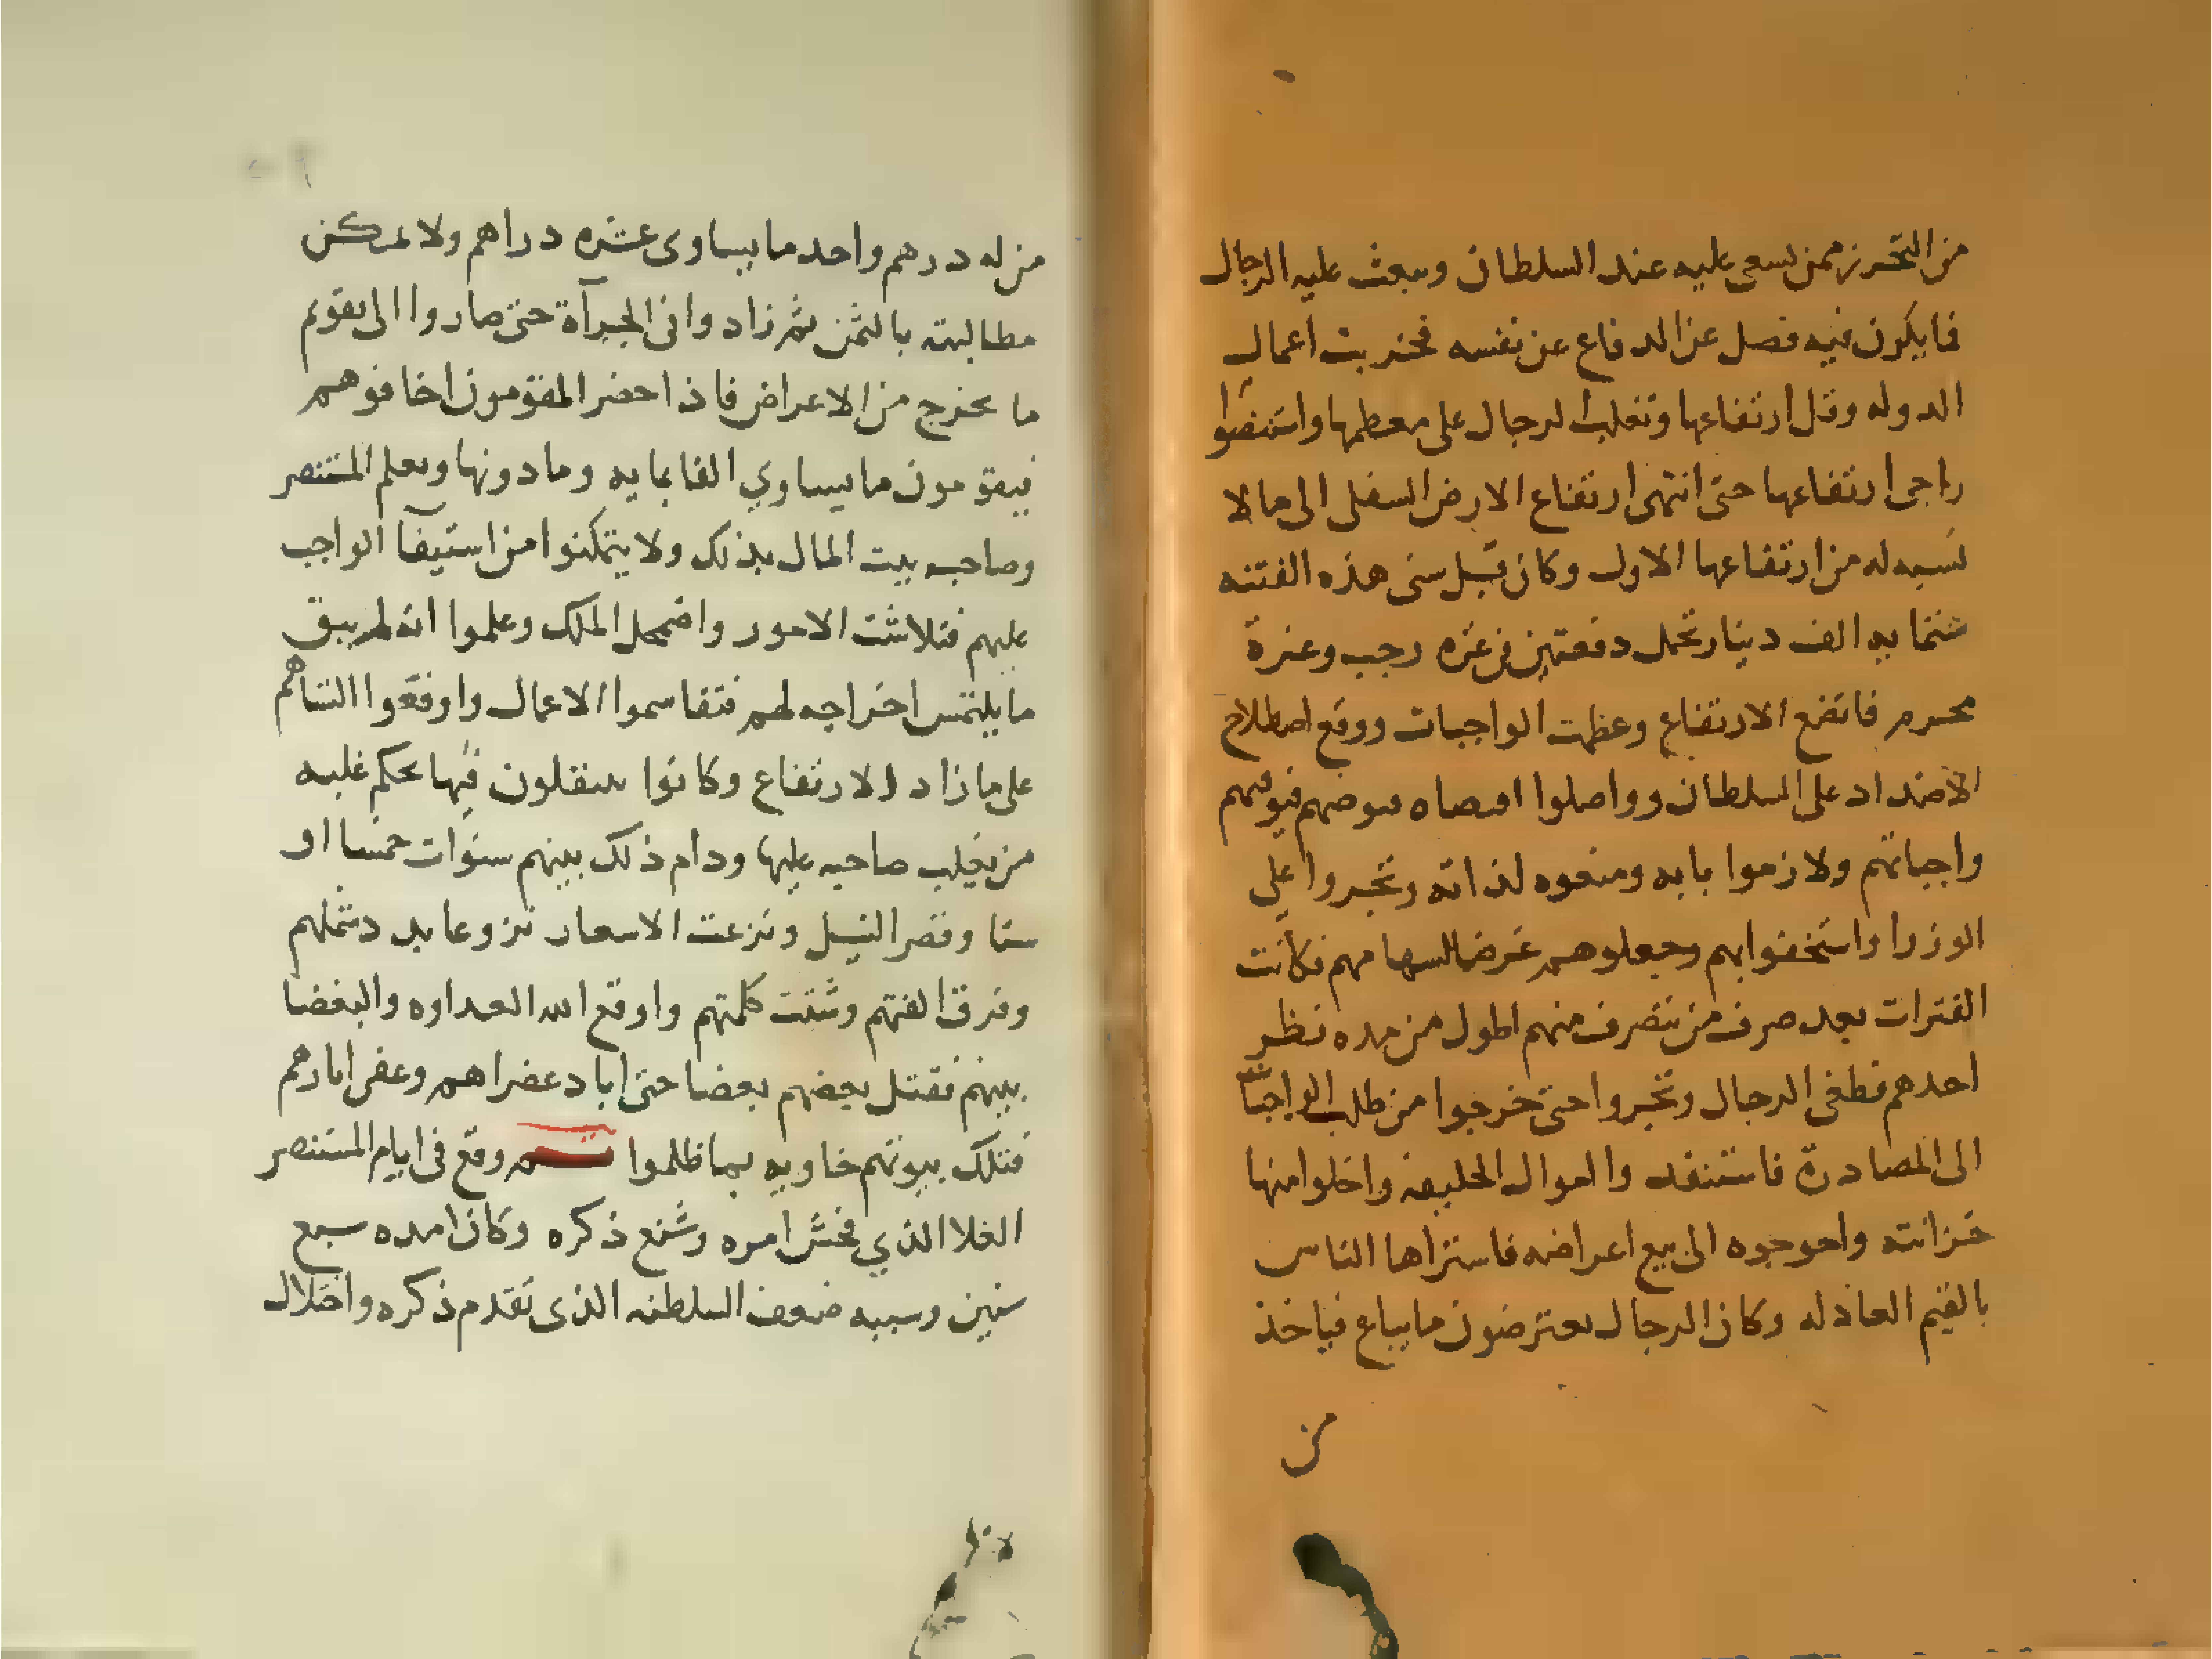 من التحرز ممن يسعى عليه عند السلطان ويبعث عليه الرجال
فما يكون فيه فصل عن الدفاع عن نفسه فخربت اعمال
الدوله وقل ارتفاعها وتغلب الرجال على معظمها واستنضوا
راجى ارتفاعها حتى انتهى ارتفاع الارض السفلى الى ما لا
نسبه له من ارتفاعها الاول وكان قبل سنى هذه الفتنه
ستمايه الف دينار تحمل دفعتين فى غره رجب وغرة
محرم فاتضع الارتفاع وعظمت الواجبات ووقع اصطلاح
الاضداد على السلطان وواصلوا
واجباتهم ولازموا بابه ومنعوه لذاته وتجبروا على
الوزرا واستخفوا بهم وجعلوهم غرضا لسهامهم فكانت
الفترات بعد صرف من تنصرف منهم اطول من مده نظر
احدهم فطغى الرجال وتجبروا حتى خرجوا من طلب الواجبات
الى المصادرة فاستنفدوا اموال الخليفه واخلوا منها
خزانته واحوجوه الى بيع اعراضه فاستراها الناس
بالقيم العادله وكان الرجال يعترضون ما يباع فياخذ
من
من له درهم واحد ما يساوى عشره دراهم ولا يمكن
مطالبته بالثمن ثم زاد وافى الجرآة حتى صاروا الى تقويم
ما يخرج من الاعراض فاذا حضر المقومون اخافوهم
فيقومون ما يساوي الفا بمايه وما دونها ويعلم المستنصر
وصاحب بيت المال بذلك ولا يتمكنوا من استيفآ الواجب
عليهم فتلاشت الامور واضمحل الملك وعلموا انه لم يبق
ما يلتمس اخراجه لهم فتقاسموا الاعمال واوقعوا التساهم
على ما زاد الارتفاع وكانوا ينتقلون فيها بحكم غلبه
من يغلب صاحبه عليها ودام ذلك بينهم سنوات خمسا او
ستا وقصر النيل ونزعت الاسعار نزوعا بدد شملهم
وفرق الفتهم وشتت كلمتهم واوقع الله العداوه والبغضا
بينهم فقتل بعضهم بعضا حتى اباد عضراهم وعفى اثارهم
فتلك بيوتهم خاويه بما ظلموا ثم وقع فى ايام المستنصر
الغلا الذي فحش امره وشنع ذكره وكان امده سبع
سنين وسببه ضعف السلطنه الذى تقدم ذكره واختلال